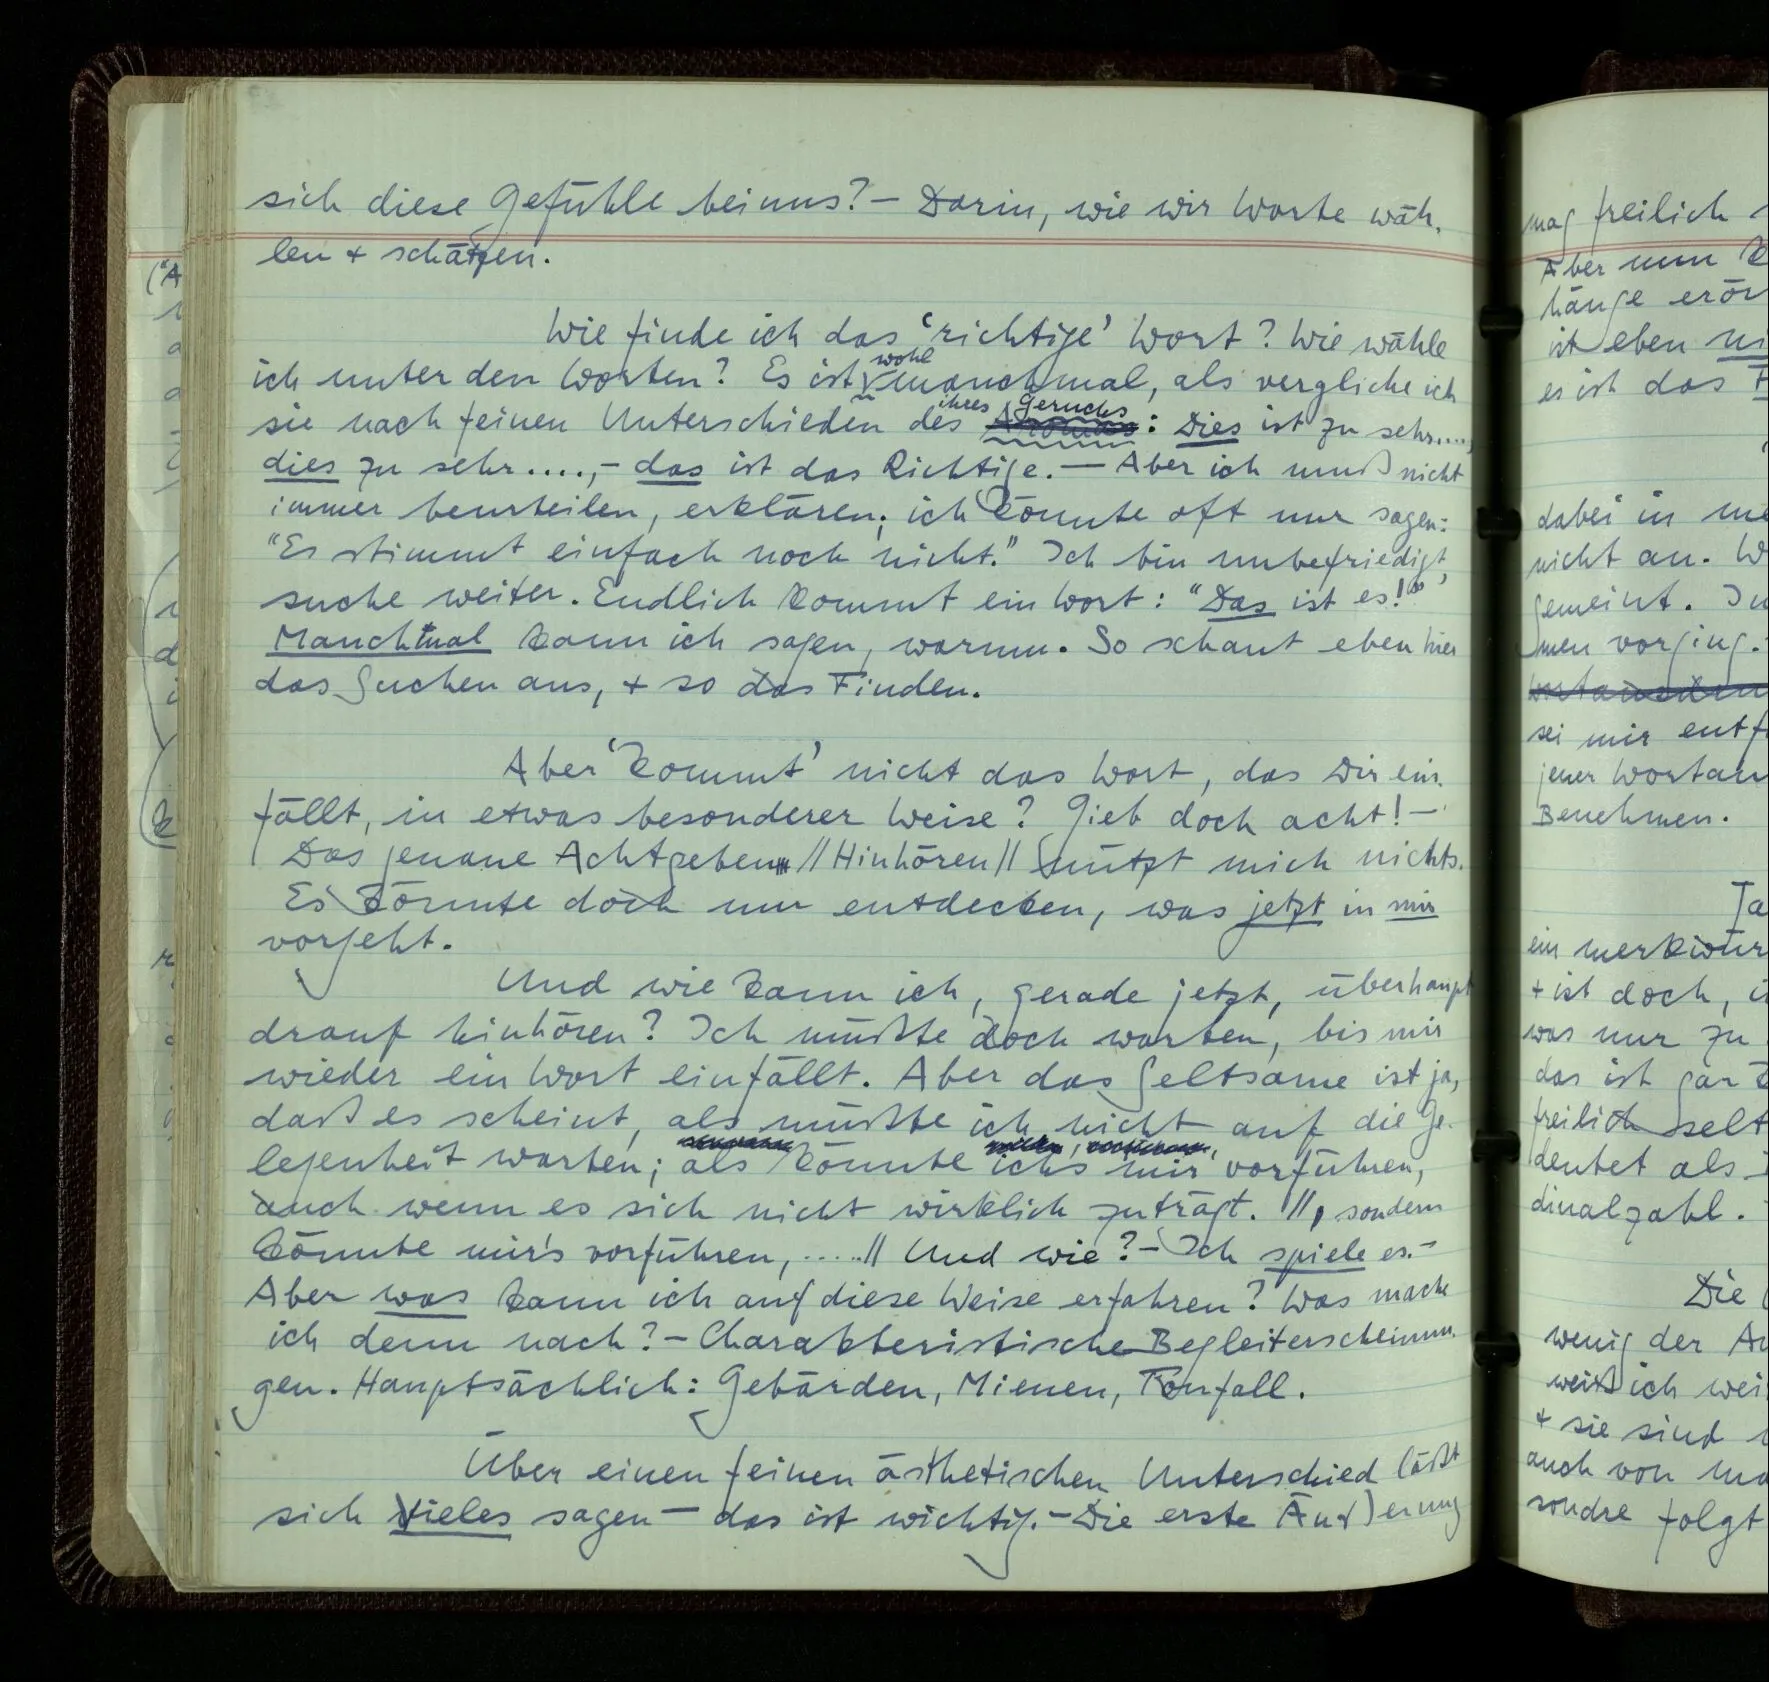 sich diese Gefühle bei uns? – Darin, wie wir Worte wäh-
len + schätzen.
Wie finde ich das ‘richtige’ Wort? Wie wähle
wohl
ich unter den Worten? Es ist manchmal, als vergliche ich
ihres Geruchs
sie nach feinen Unterschieden des Aromas: Dies ist zu sehr....,
dies zu sehr....,– das ist das Richtige. – Aber ich muß nicht
immer beurteilen, erklären; ich könnte oft nur sagen:
“Es stimmt einfach noch nicht.” Ich bin unbefriedigt,
suche weiter. Endlich kommt ein Wort: “Das ist es!”
Manchmal kann ich sagen, warum. So schaut eben hier
das Suchen aus, + so das Finden.
Aber ‘kommt’ nicht das Wort, das Dir ein-
fällt, in etwas besonderer Weise? Gieb doch acht! –
Das genaue Achtgeben //Hinhören// nützt mich nichts.
Es könnte doch nur entdecken, was jetzt in mir
vorgeht.
Und wie kann ich, gerade jetzt, überhaupt
drauf hinhören? Ich müßte doch warten, bis mir
wieder ein Wort einfällt. Aber das Seltsame ist ja,
daß es scheint, als müßte ich nicht auf die Ge-
legenheit warten; als könnte ich's mir vorführen,
auch wenn es sich nicht wirklich zuträgt. //, sondern
könnte mir's vorführen, .....// Und wie? – Ich spiele es. –
Aber was kann ich auf diese Weise erfahren? Was mache
ich denn nach? – Charakteristische Begleiterscheinun-
gen. Hauptsächlich: Gebärden, Mienen, Tonfall.
Über einen feinen ästhetischen Unterschied läßt
sich Vieles sagen – das ist wichtig. – Die erste Äußerung
mag freilich
Aber nun
hänge erör
ist eben
es ist das
dabei in me
nicht an. W
gemeint. In
men vorging.
sei mir entf
jener Wortan
Benehmen.
Ta
ein merkwür
+ ist doch,
was nur zu
das ist gar
freilich selt
deutet als
dinalzahl.
Die
wenig der Au
weiß ich wei
+ sie sind
auch von ma
sondre folgt